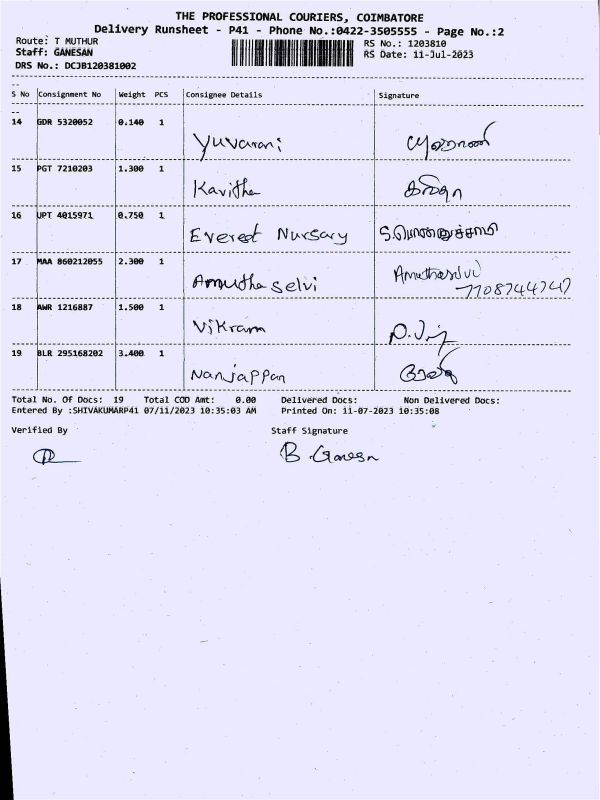 THE PROFESSIONAL COURIERS, COIMBATORE
Delivery Runsheet - P41 - Phone No.:0422-3505555 - Page No.:2
Route: T MUTHUR RS No.: 1203810
Staff: GANESAN RS Date: 11-Jul-2023
DRS No.: DCJB120381002
S No Consignment No Weight PCS Consignee Details Signature
14 GDR 5320052 0.140 1
Yuvarani யுவராணி
15 PGT 7210203 1.300 1
Kavitha கவிதா
16 UPT 4015971 0.750 1
Everest Nursary
17 MAA 860212055 2.300 1
Amutha selvi Amuthaselvi
7708744747
18 AWR 1216887 1.500 1
Vikram
19 BLR 295168202 3.400 1
Nanjappan
Total No. Of Docs: 19 Total COD Amt: 0.00 Delivered Docs: Non Delivered Docs:
Entered By :SHIVAKUMARP41 07/11/2023 10:35:03 AM Printed On: 11-07-2023 10:35:08
Verified By Staff Signature
B. Ganesn